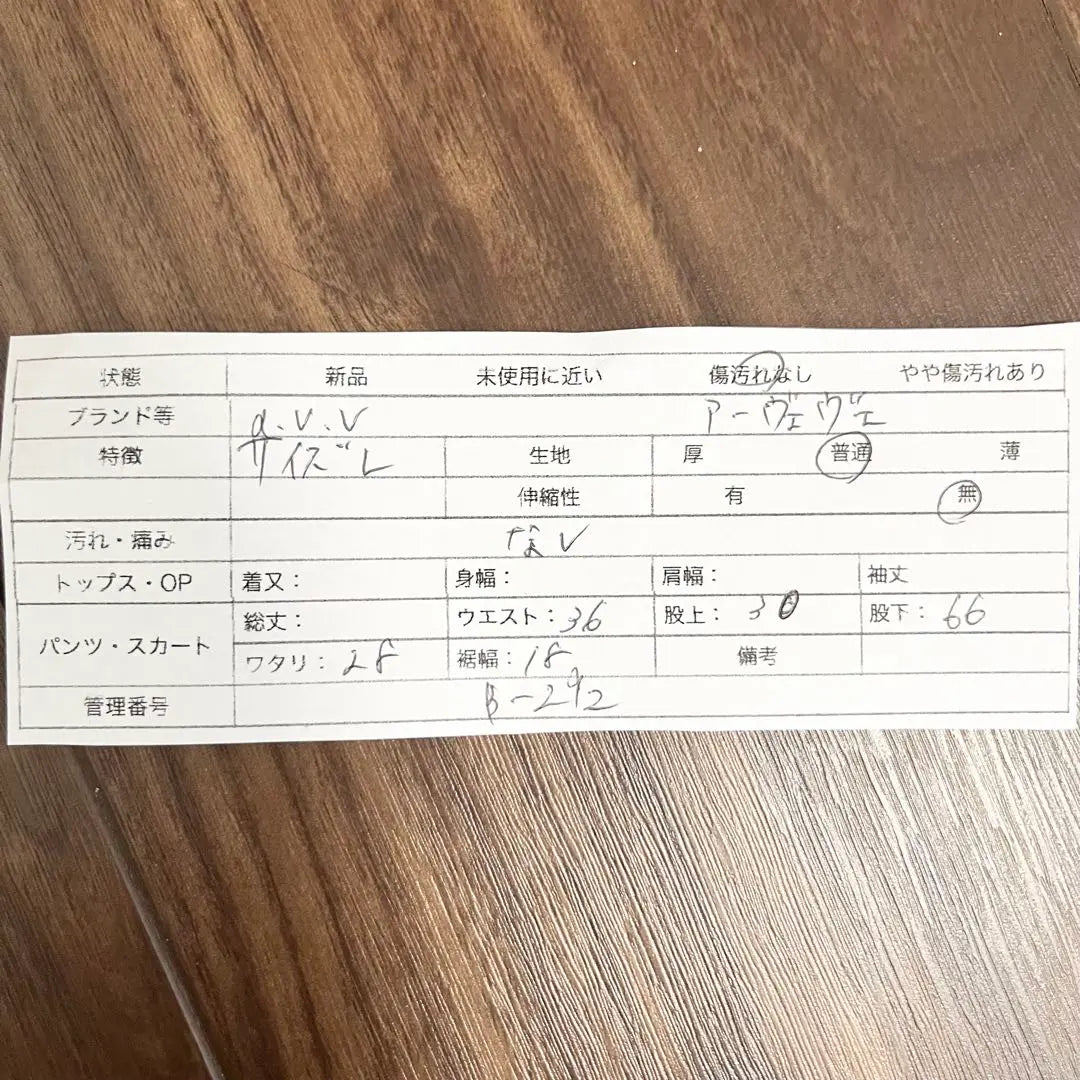 状態 新品 未使用に近い 傷汚れなし やや傷汚れあり
ブランド等 a.v.v アーヴェヴェ
特徴 サイズL 生地 厚 普通 薄
伸縮性 有 無
汚れ・痛み なし
トップス・OP 着又： 身幅： 肩幅： 袖丈
パンツ・スカート 総丈： ウエスト：36 股上：30 股下：66
ワタリ：28 裾幅：18 備考
管理番号 B-292